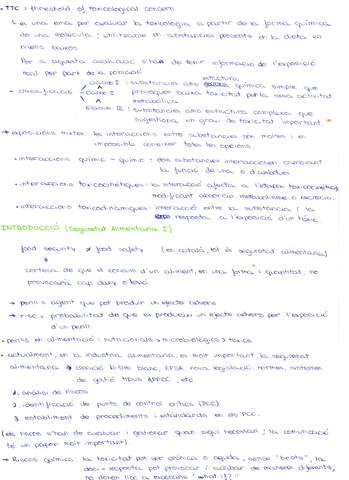 • TTC = threshold of toxicological concern
↳ és una eina per avaluar la toxicologia a partir de la forma química
de una molècula; utilitzable en substàncies presents en la dieta en
nivells baixos.
Per a aquesta avaluació s'ha de tenir informació de l'exposició
real per part de la població
estructura
- classificació - classe I : substàncies amb química simple que
classe II provoquen baixa toxicitat per la seva activitat
metabòlica
classe III : substàncies amb estructura complexa que
suggestiona un grau de toxicitat important
→ exposicions mixtes: les interaccions entre substàncies són moltes i és
impossible conèixer totes les opcions.
• interaccions químic - químic : dos substàncies interaccionen, canviant
la funció de una o d'ambdues.
• interaccions toxicocinètiques: la interacció afecta a l'etapa toxicocinètica,
modificant absorció, metabolisme o excreció.
• interaccions toxicodinàmiques: interacció entre la substància i la
resposta a l'exposició d'un tòxic.
INTRODUCCIÓ (Seguretat Alimentaria I)
food security ≠ food safety (en català, tot és seguretat alimentaria)
certesa de que el consum d'un aliment, en una forma i quantitat, no
provocarà cap dany o lesió.
→ perill = agent que pot produir un efecte advers
→ risc = probabilitat de que es produeixi un efecte advers per l'exposició
d'un perill
• perills en alimentació : nutricionals > microbiològics > tòxics
• actualment, en la industria alimentaria, és molt important la seguretat
alimentaria → creació llibre blanc, EFSA, nova legislació, normes, sistemes
de gestió tipus APPCC, etc
1. anàlisi de riscos
2. identificació de punts de control crítics (PCC)
3. establiment de procediments i estàndards en els PCC.
(els riscos s'han de avaluar i gestionar quan sigui necessari; la comunicació
té un paper molt important).
→ Riscos químics: la toxicitat pot ser crònica o aguda, sense "brots", la
dosi - resposta pot provocar i acabar de maneres diferents,
no donen lloc a escenaris "what if?"